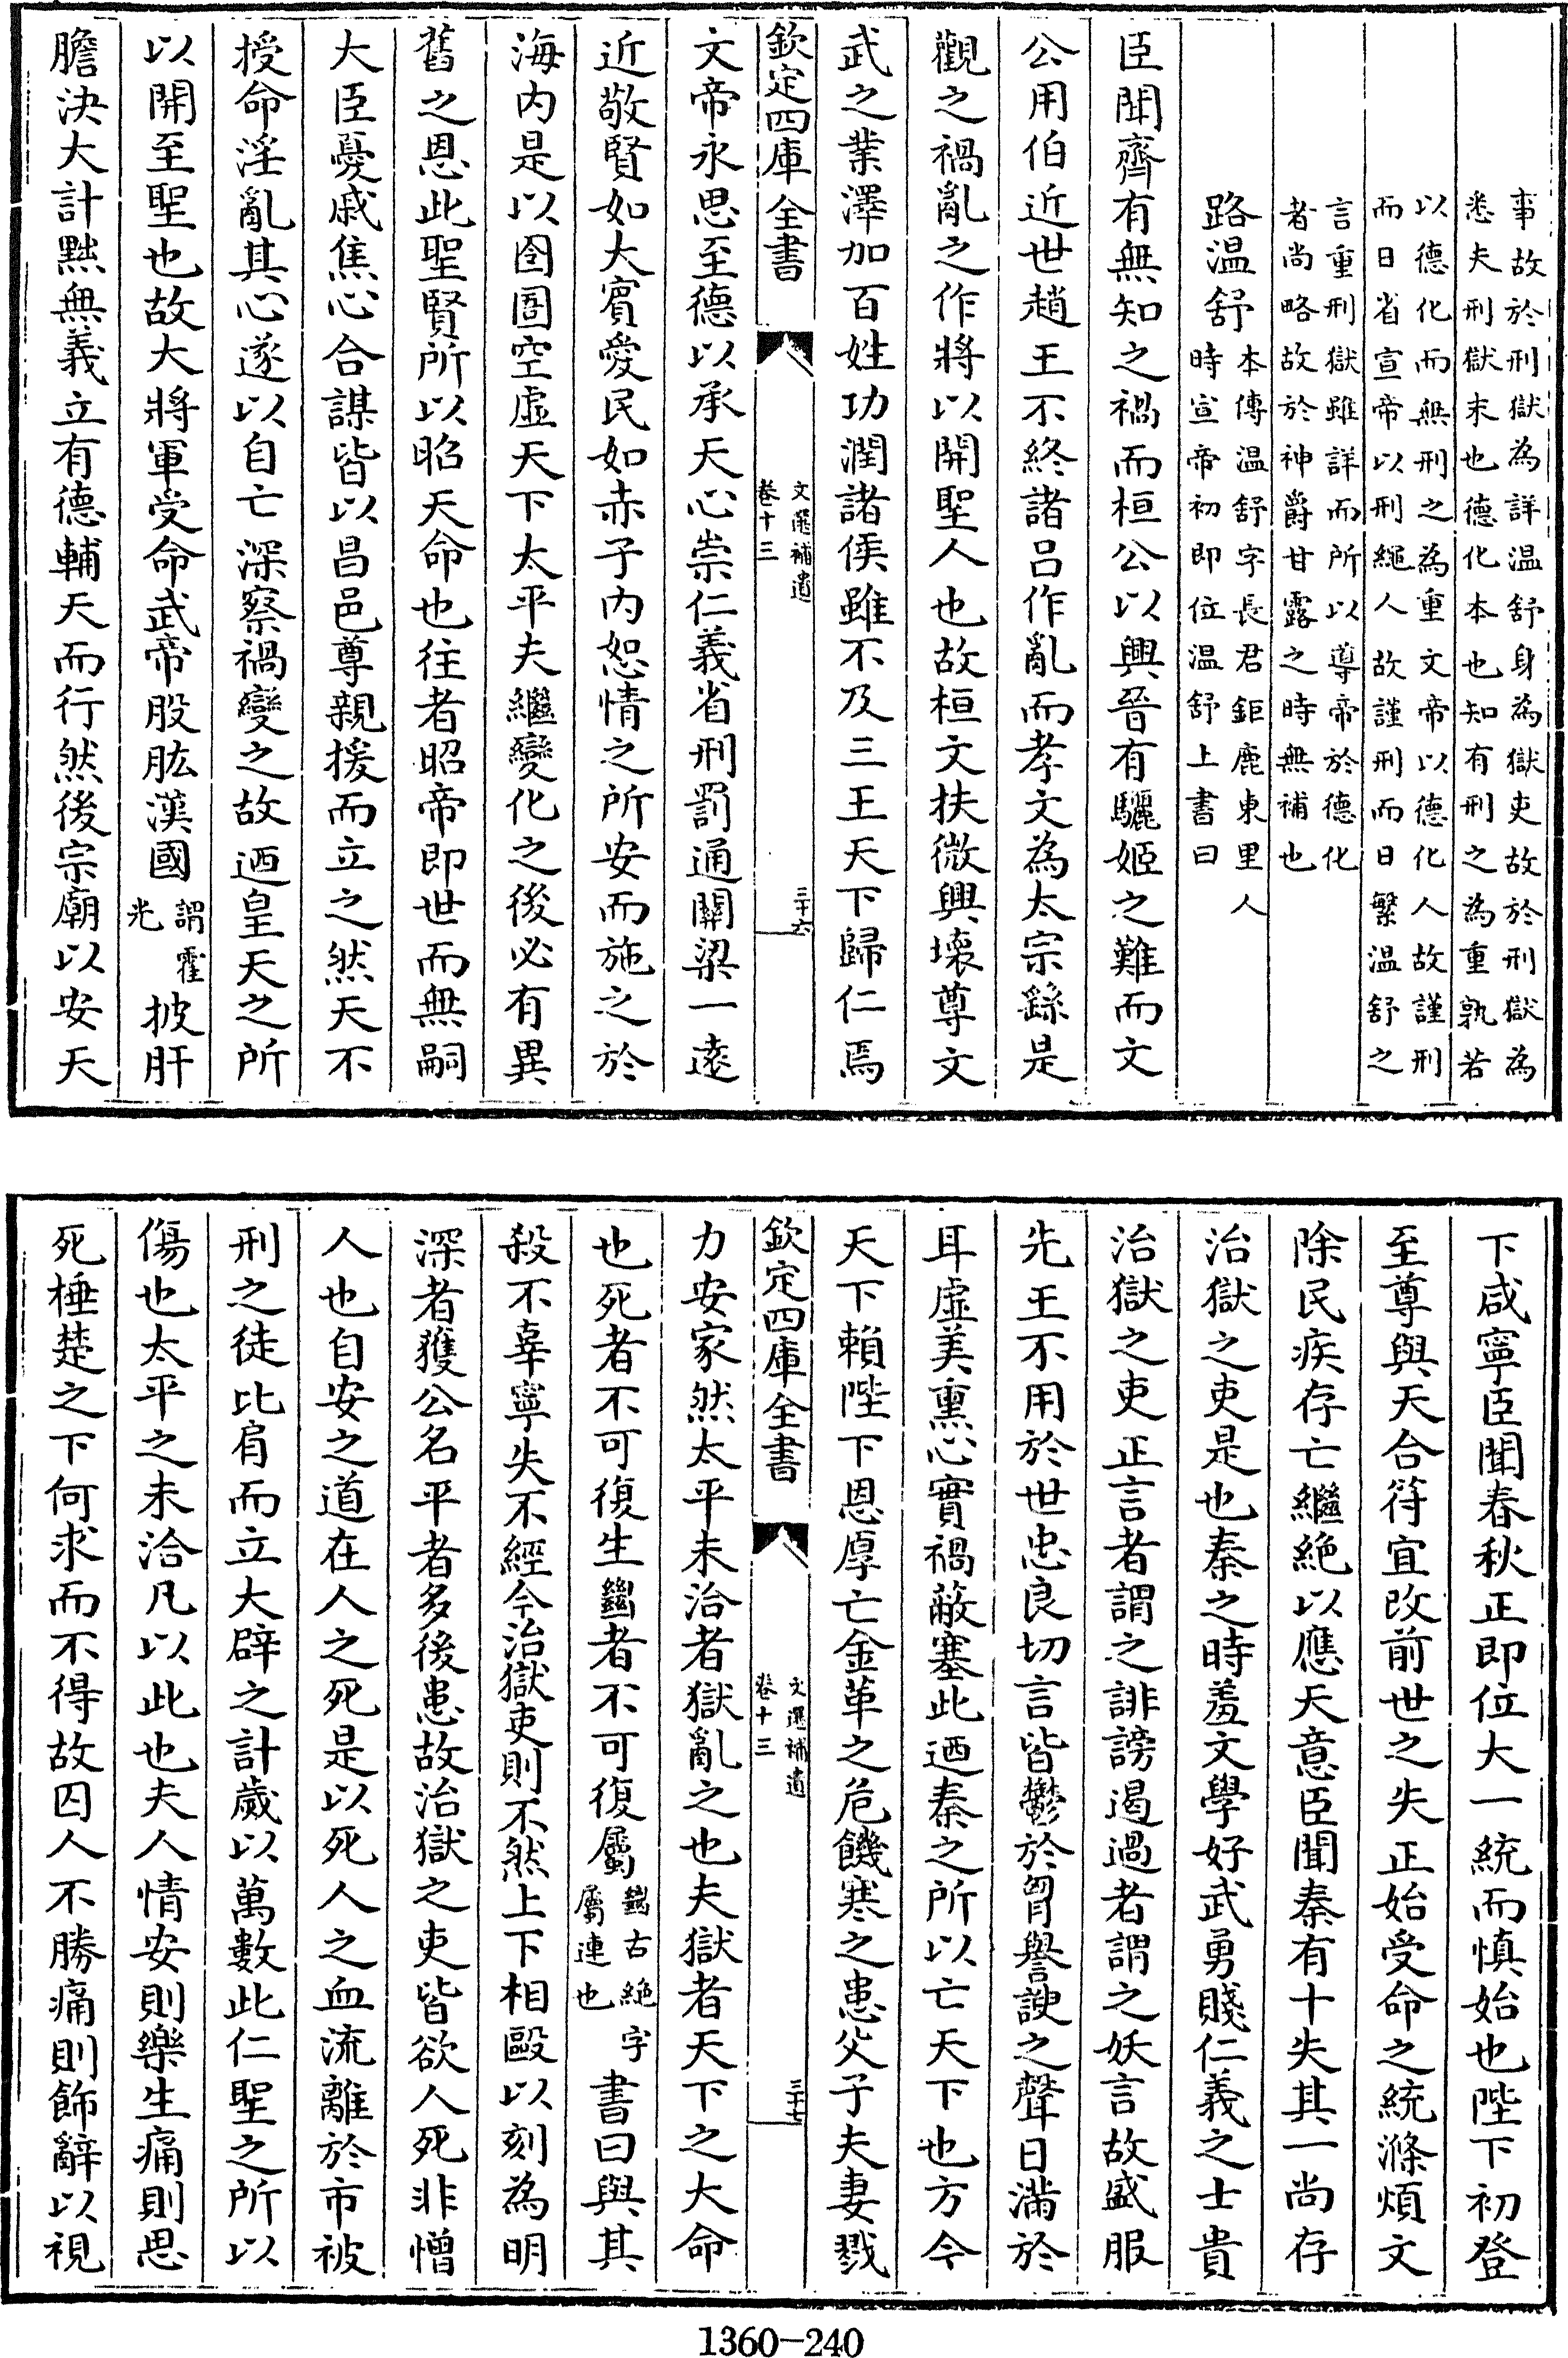 事故於刑獄為詳温舒身為獄吏故於刑獄為
悉夫刑獄末也德化本也知有刑之為重孰若
以德化而無刑之為重文帝以德化人故謹刑
而日省宣帝以刑繩人故謹刑而日繁温舒之
言重刑獄雖詳而所以導帝於德化
者尚略故於神爵甘露之時無補也
路温舒
本傳温舒字長君鉅鹿東里人
時宣帝初即位温舒上書曰
臣聞齊有無知之禍而桓公以興晉有驪姬之難而文
公用伯近世趙王不終諸呂作亂而孝文為太宗繇是
觀之禍亂之作將以開聖人也故桓文扶微興壞尊文
武之業澤加百姓功潤諸侯雖不及三王天下歸仁焉
欽定四庫全書
文選補遺
卷十三
三十六
文帝永思至德以承天心崇仁義省刑罰通關梁一遠
近敬賢如大賓愛民如赤子內恕情之所安而施之於
海內是以囹圄空虛天下太平夫繼變化之後必有異
舊之恩此聖賢所以昭天命也往者昭帝即世而無嗣
大臣憂戚焦心合謀皆以昌邑尊親援而立之然天不
授命淫亂其心遂以自亡深察禍變之故迺皇天之所
以開至聖也故大將軍受命武帝股肱漢國
謂霍
光
披肝
膽決大計黜無義立有德輔天而行然後宗廟以安天
下咸寧臣聞春秋正即位大一統而慎始也陛下初登
至尊與天合符宜改前世之失正始受命之統滌煩文
除民疾存亡繼絶以應天意臣聞秦有十失其一尚存
治獄之吏是也秦之時羞文學好武勇賤仁義之士貴
治獄之吏正言者謂之誹謗遏過者謂之妖言故盛服
先王不用於世忠良切言皆鬱於胷譽諛之聲日滿於
耳虛美熏心實禍蔽塞此迺秦之所以亡天下也方今
天下賴陛下恩厚亡金革之危饑寒之患父子夫妻戮
欽定四庫全書
文選補遺
卷十三
三十七
力安家然太平未洽者獄亂之也夫獄者天下之大命
也死者不可復生㡭者不可復屬
㡭古絶字
屬連也
書曰與其
殺不辜寧失不經今治獄吏則不然上下相毆以刻為明
深者獲公名平者多後患故治獄之吏皆欲人死非憎
人也自安之道在人之死是以死人之血流離於市被
刑之徒比肩而立大辟之計歲以萬數此仁聖之所以
傷也太平之未洽凡以此也夫人情安則樂生痛則思
死棰楚之下何求而不得故囚人不勝痛則飾辭以視
1360-240